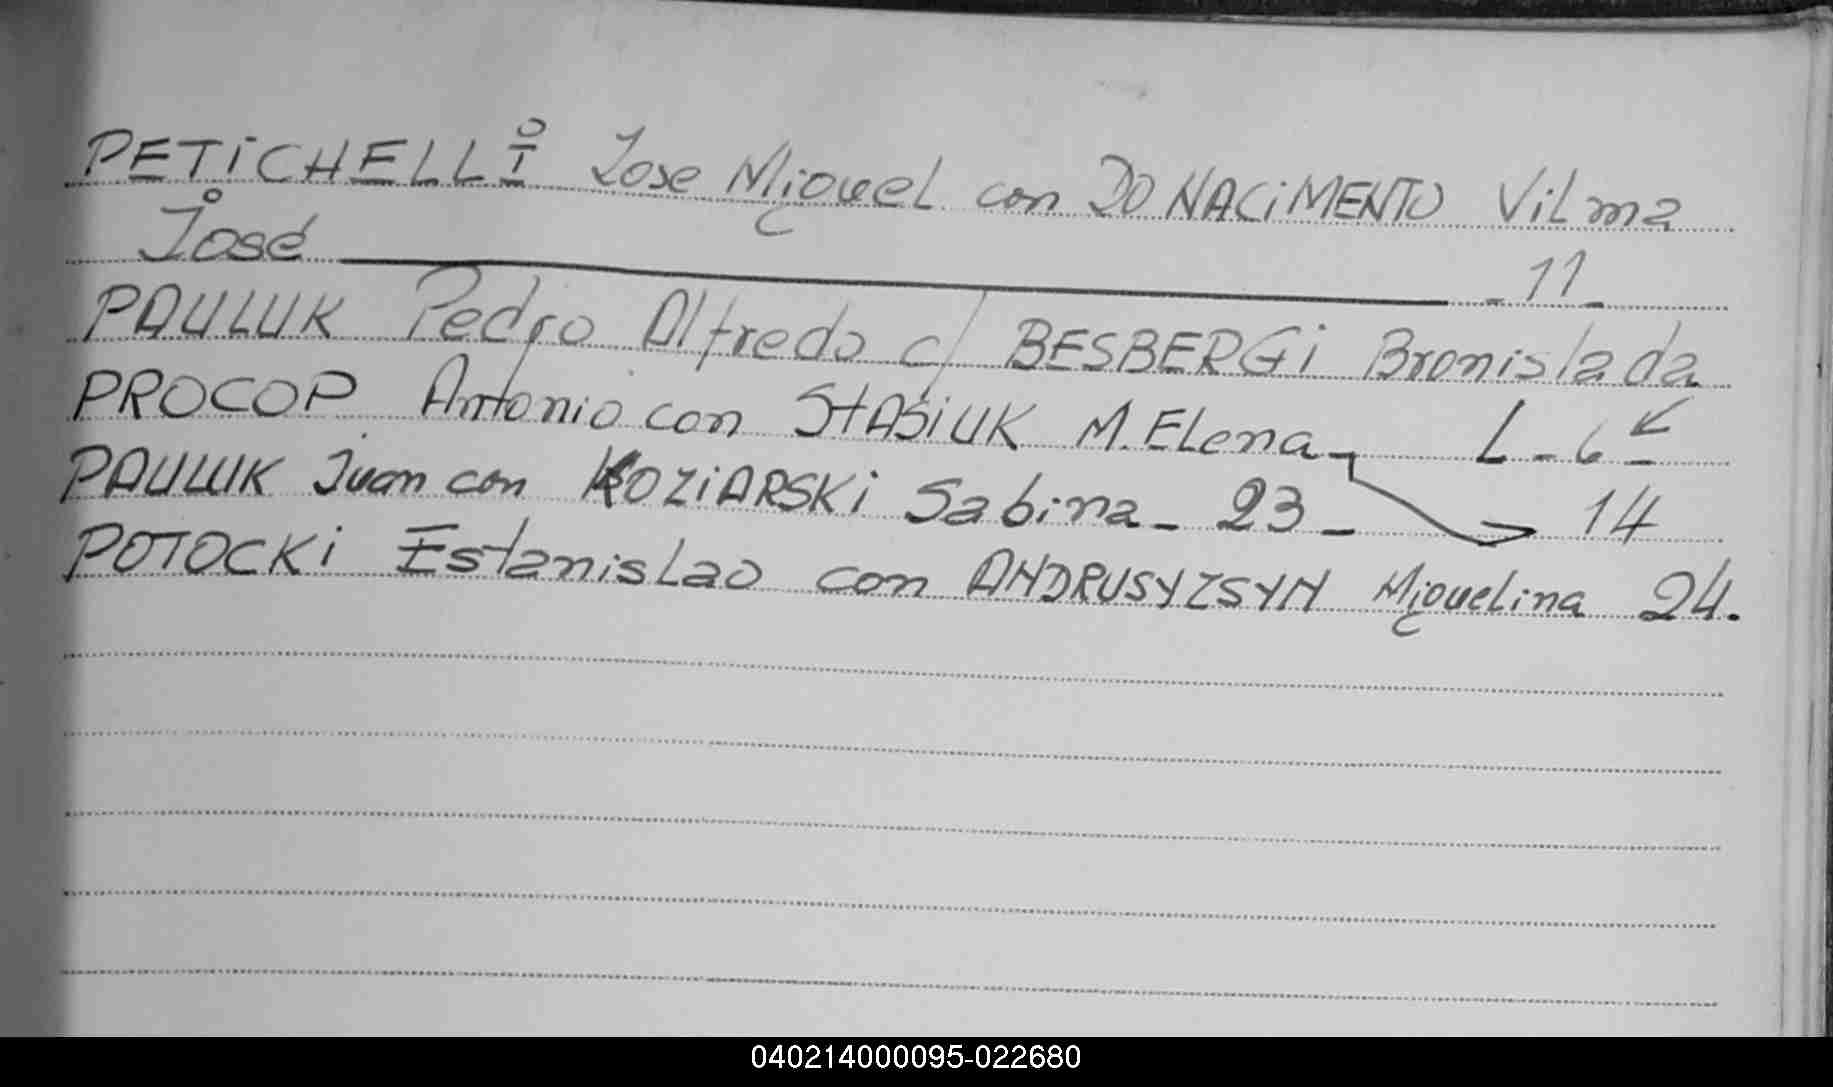 PETiCHELLI Jose Miguel con DO NACiMENTO Vilma
José - 11 -
PAULUK Pedro Alfredo c/ BESBERGi Bronislada
PROCOP Antonio con STASiUK M. Elena L - 6 -
PAULUK Juan con KOZiARSKi Sabina - 23 - 14
POTOCKi Estanislao con ANDRUSYZSYN Miguelina 24.
040214000095-022680